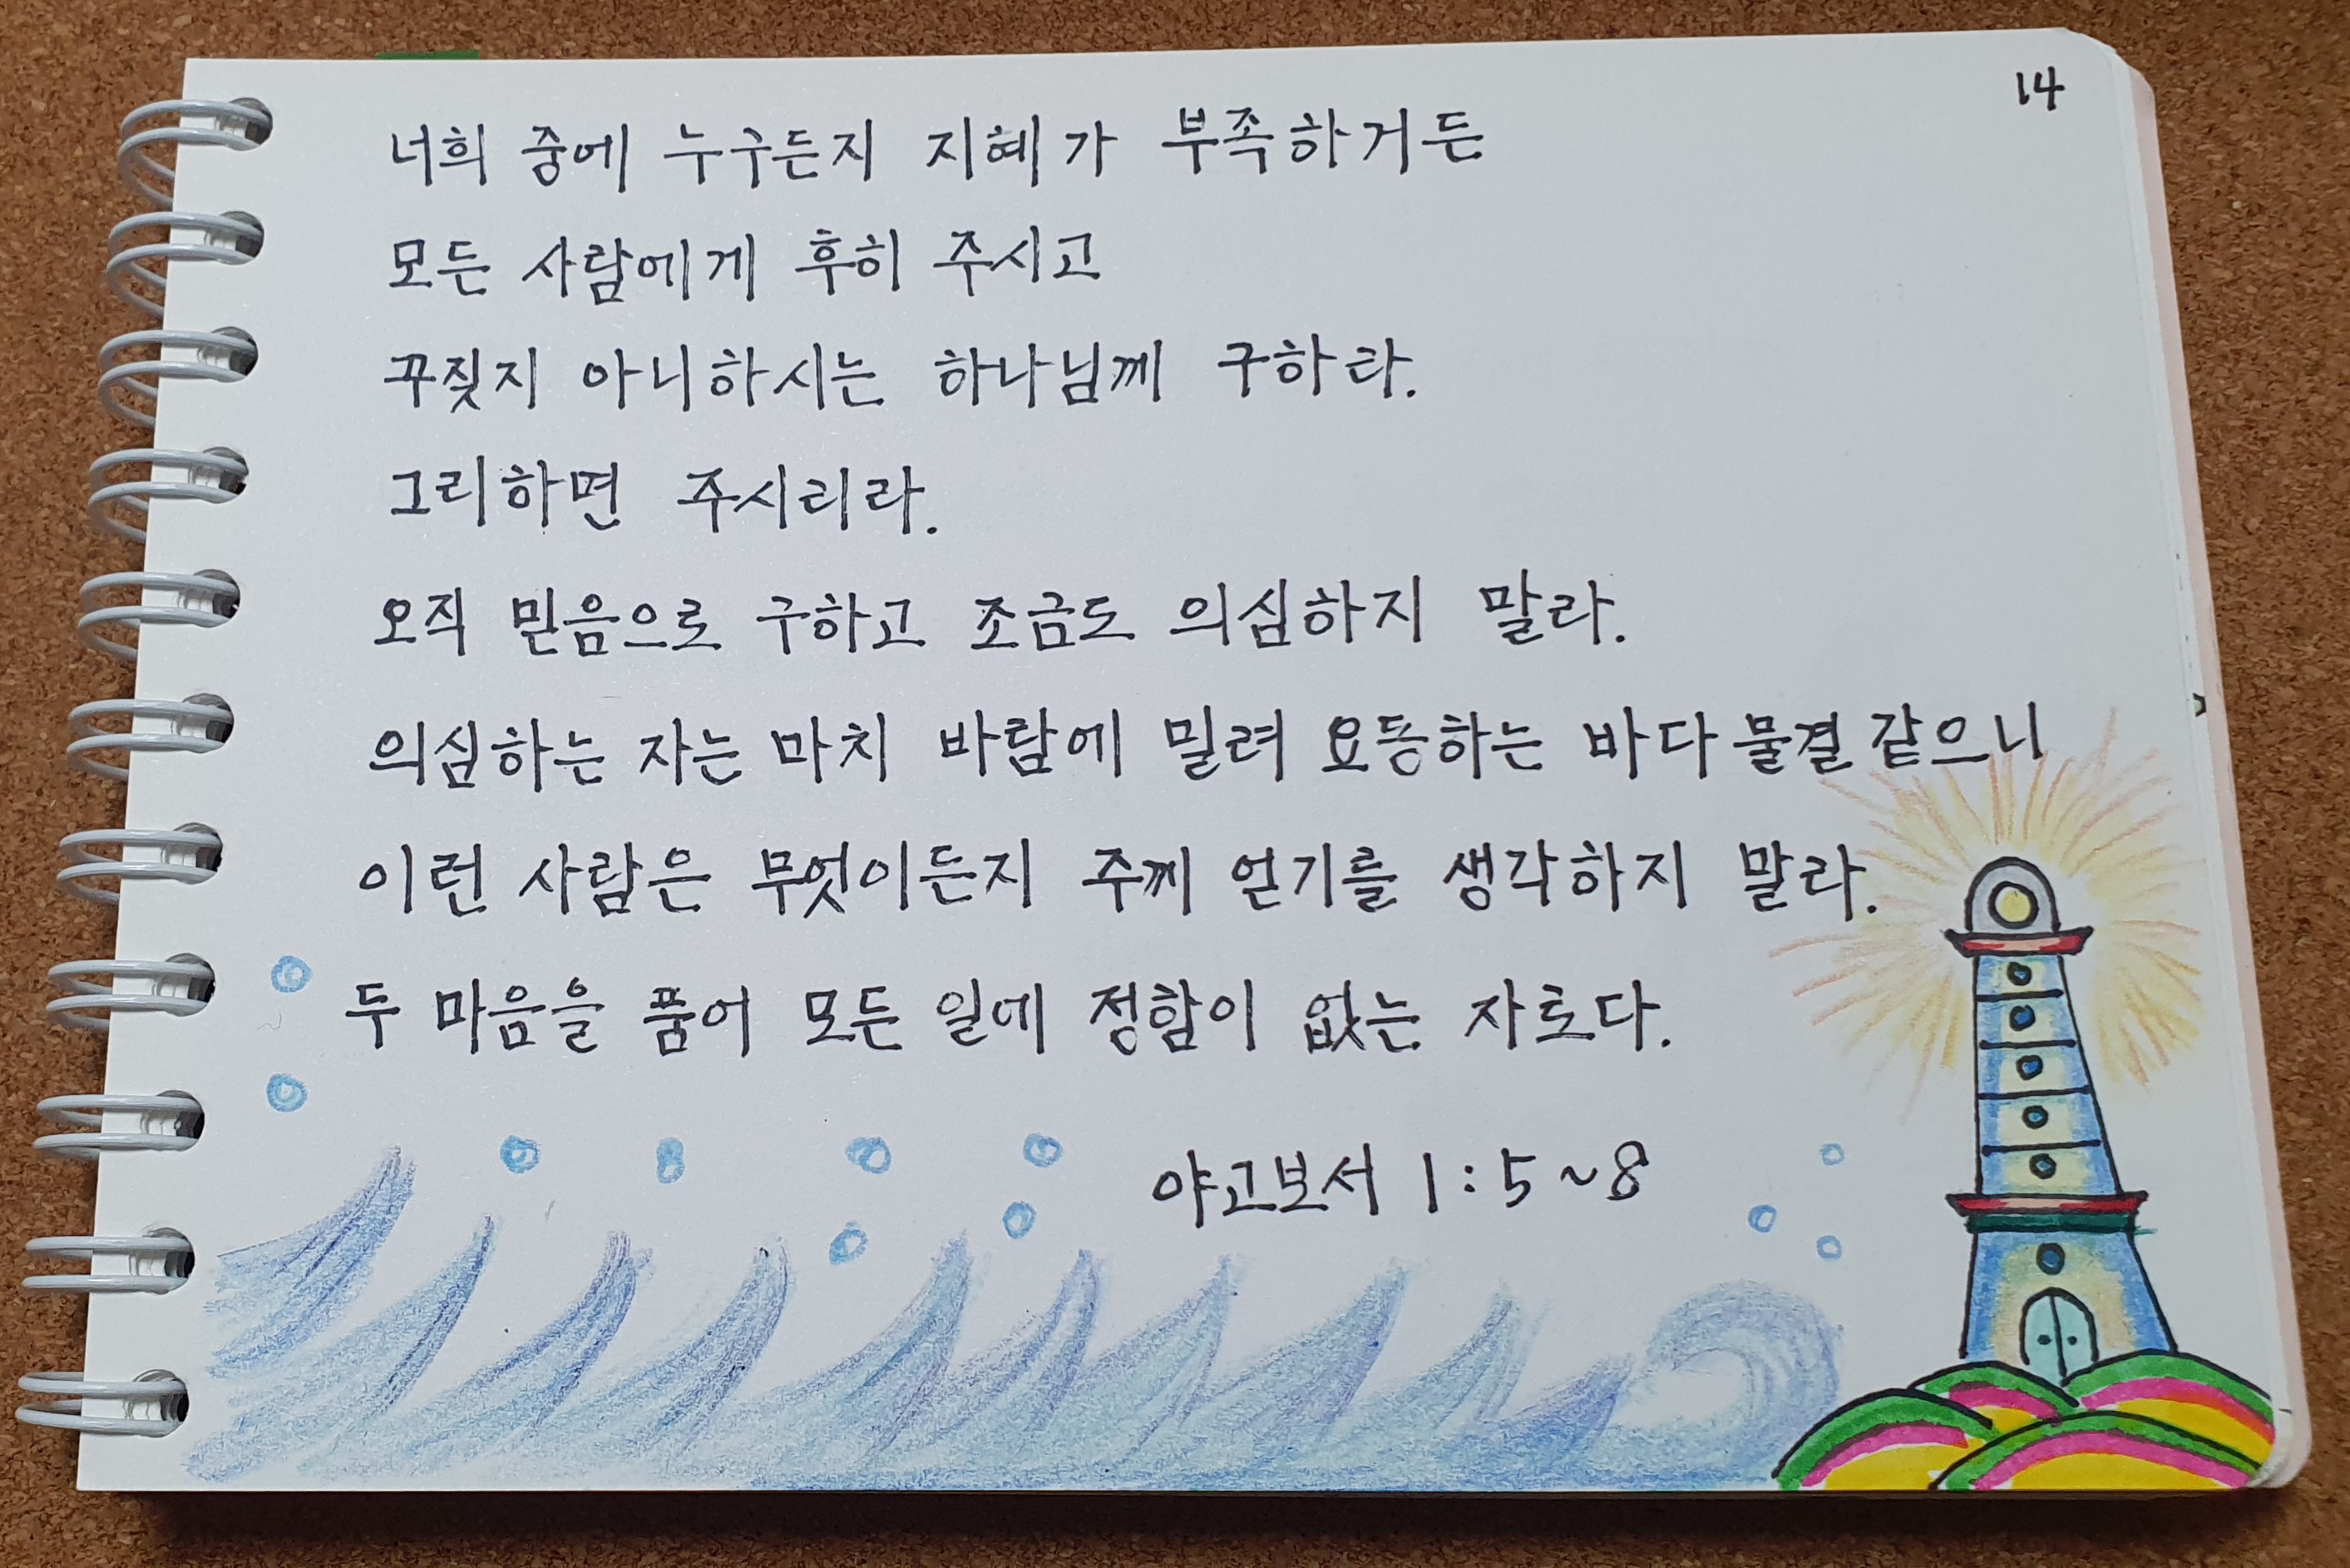 14
너희 중에 누구든지 지혜가 부족하거든
모든 사람에게 후히 주시고
꾸짖지 아니하시는 하나님께 구하라.
그리하면 주시리라.
오직 믿음으로 구하고 조금도 의심하지 말라.
의심하는 자는 마치 바람에 밀려 요동하는 바다 물결 같으니
이런 사람은 무엇이든지 주께 얻기를 생각하지 말라.
두 마음을 품어 모든 일에 정함이 없는 자로다.
야고보서 1:5~8